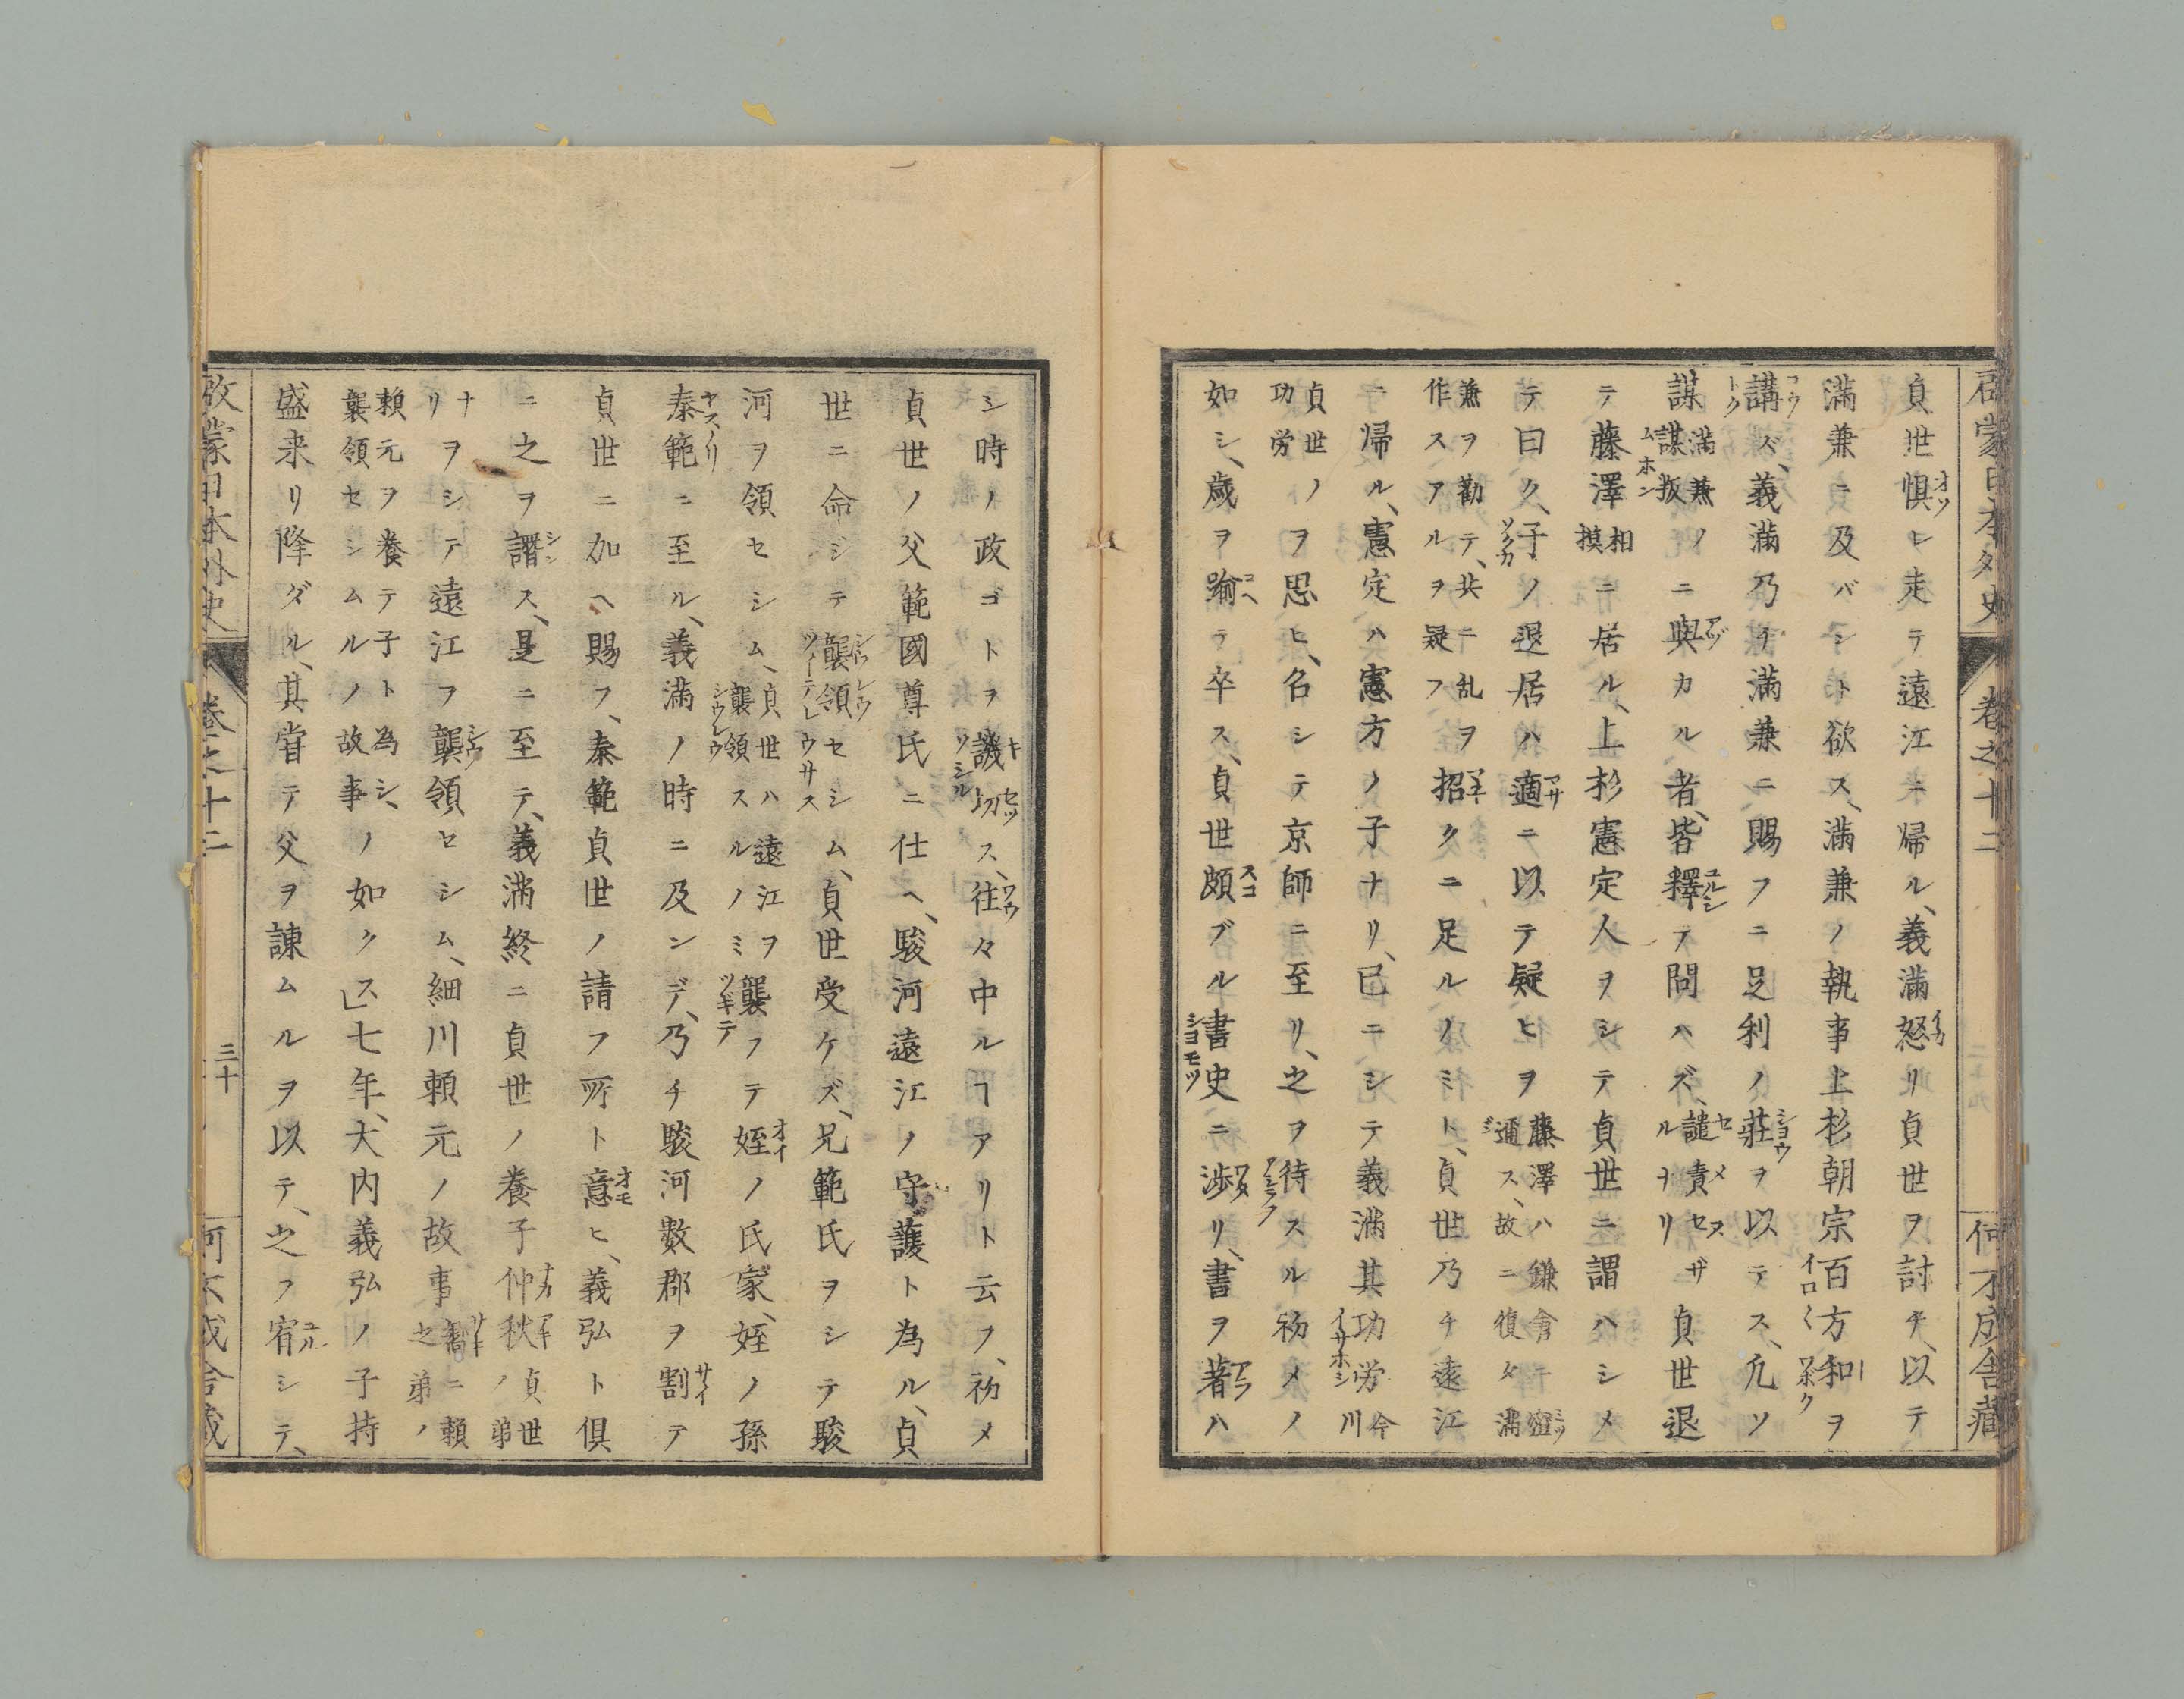 啓蒙日本外史 巻之十二 何不成舎藏
貞世惧レ走テ遠江ニ帰ル、義滿怒リ貞世ヲ討チ、以テ
滿兼ニ及バント欲ス、滿兼ノ執事上杉朝宗百方和ヲ
講ズ、義滿乃チ滿兼ニ賜フニ足利ノ莊ヲ以テス、凡ソ
謀滿兼ノ謀叛ニ與カル者、皆釋テ問ハズ、譴責セザルヲリ貞世退
テ藤澤相摸ニ居ル、上杉憲定人ヲシテ貞世ニ謂ハシメ
テ曰ク、子ノ退居ハ適ニ以テ疑ヒヲ藤澤ハ鎌倉ニ密邇ス、故ニ復タ滿
兼ヲ勸テ、共ニ乱ヲ作スアルヲ疑フ招クニ足ルノミト、貞世乃チ遠江
ニ帰ル、憲定ハ憲方ノ子ナリ、已ニシテ義滿其功労今川
貞世ノ功労ヲ思ヒ、名シテ京師ニ至リ、之ヲ待スル初メノ
如シ、歳ヲ踰テ卒ス、貞世頗ブル書史ニ渉リ、書ヲ著ハ
シ時ノ政ゴトヲ譏切ス、往々中ルヿアリト云フ、初メ
貞世ノ父範國尊氏ニ仕ヘ、駿河遠江ノ守護ト為ル、貞
世ニ命ジテ襲領セシム、貞世受ケズ、兄範氏ヲシテ駿
河ヲ領セシム、貞世ハ遠江ヲ襲領スルノミ襲フテ姪ノ氏家、姪ノ孫
泰範ニ至ル、義滿ノ時ニ及ンデ、乃チ駿河数郡ヲ割テ
貞世ニ加ヘ賜フ、泰範貞世ノ請フ所ト意ヒ、義弘ト倶
ニ之ヲ譖ス、是ニ至テ、義滿終ニ貞世ノ養子仲秋貞世ノ弟
ナリヲシテ遠江ヲ襲領セシム、細川頼元ノ故事
頼元ヲ養テ子ト為シ、襲領セシムルノ故事ノ如クス」七年、大内義弘ノ子持
盛来リ降ダル、其甞テ父ヲ諌ムルヲ以テ、之フ宥シテ、
啓蒙日本外史 巻之十二 三十 何不成舎藏